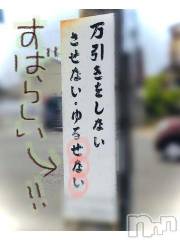 万引きをしない
させない・ゆるせない
すばらしい
!!